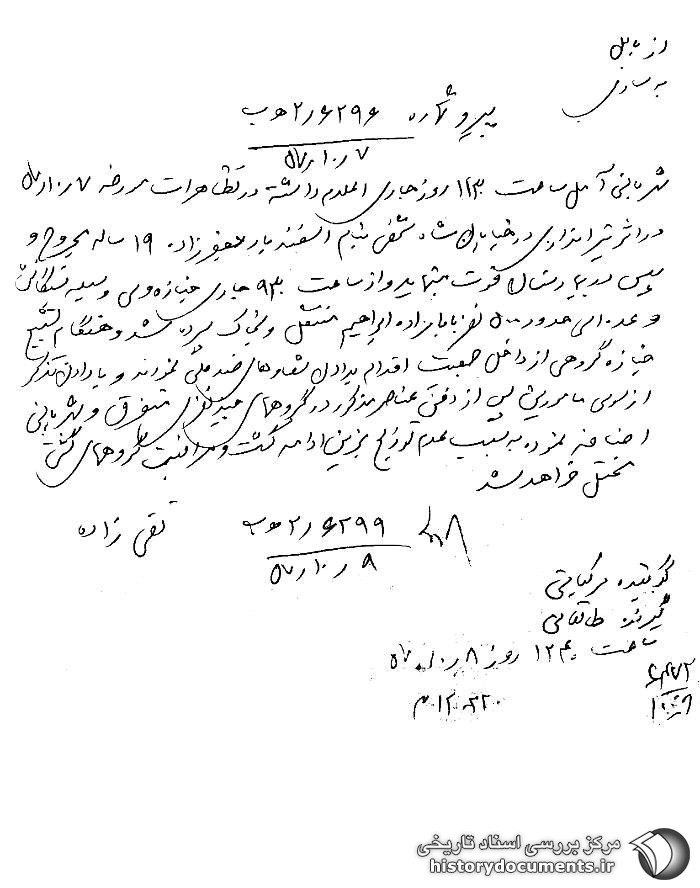 از بابل
به ساری
پیرو شماره ۲/۶۲۹۶ ه‍ ب
۷/۱۰/۵۷
شهربانی آمل ساعت ۱۱۳۰ روز جاری اعلام داشته در تظاهرات مورخه ۷/۱۰/۵۷
در اثر تیراندازی در خیابان شاه شخصی بنام اسفندیار صفرزاده ۱۹ ساله مجروح و
سپس در بیمارستان فوت مینماید و از ساعت ۹۳۰ جاری جنازه وی وسیله بستگانش
و عده‌ای حدود ۵۰۰ نفر بامامزاده ابراهیم منتقل و بخاک سپرده شد و هنگام تشییع
جنازه گروهی از داخل جمعیت اقدام بدادن شعارهای ضد ملی نمودند و با دادن تذکر
از سوی مامورین پس از دفن عناصر مذکور در گروههای چند نفری متفرق و شهربانی
اضافه نموده به سبب عدم توزیع بنزین ادامه گشت و مراقبت گروههای گشتی
مختل خواهد شد
تقی زاده
۲/۶۲۹۹ ه‍ ب
۹/۱۰/۵۷
گوینده
گیرنده طالقانی
ساعت ۱۲۴۰ روز ۸/۱۰/۵۷
مرکز بررسی اسناد تاریخی
historydocuments.ir